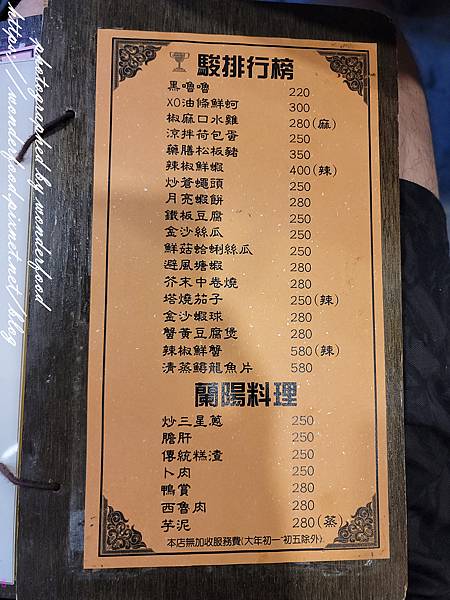 駿排行榜
黑嚕嚕 220
XO油條鮮蚵 300
椒麻口水雞 280(麻)
涼拌荷包蛋 250
藥膳松板豬 350
辣椒鮮蝦 400(辣)
炒蒼蠅頭 250
月亮蝦餅 280
鐵板豆腐 250
金沙絲瓜 250
鮮菇蛤蜊絲瓜 250
避風塘蝦 280
芥末中卷燒 280
塔燒茄子 250(辣)
金沙蝦球 280
蟹黃豆腐煲 280
辣椒鮮蟹 580(辣)
清蒸龍魚片 580
蘭陽料理
炒三星蔥 250
膽肝 250
傳統糕渣 250
卜肉 250
鴨賞 280
西魯肉 280
芋泥 280(蒸)
本店無加收服務費(大年初一~初五除外)
photographed by wonderfood
https://wonderfood.pixnet.net/blog